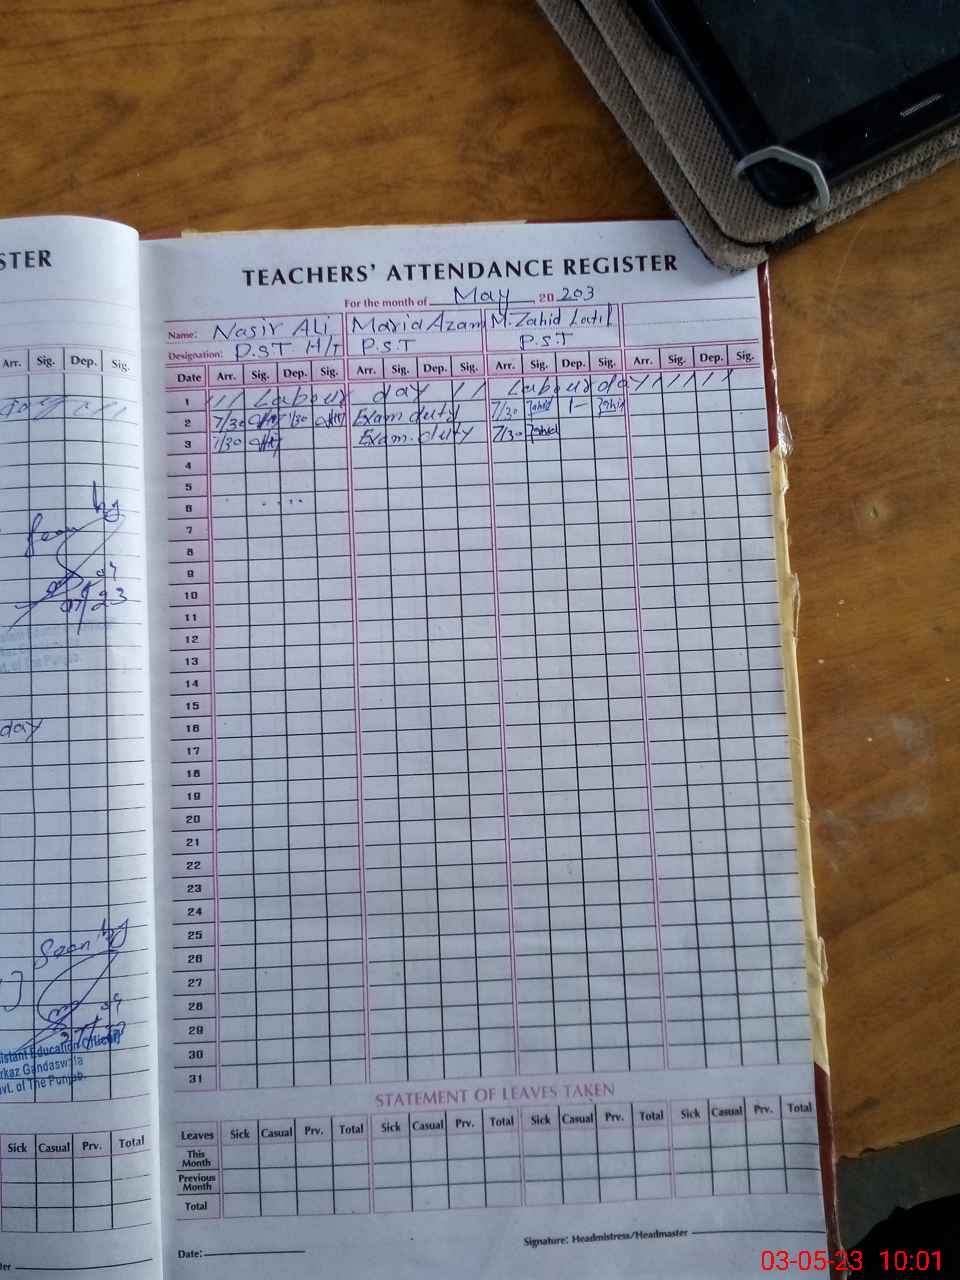 STER
TEACHERS' ATTENDANCE REGISTER
For the month of May, 20 203
Name: Nasir Ali Maria Azam M. Zahid Latif
Designation: P.S.T H/T P.S.T P.S.T
Arr. Sig. Dep. Sig.
Date Arr. Sig. Dep. Sig. Arr. Sig. Dep. Sig. Arr. Sig. Dep. Sig. Arr. Sig. Dep. Sig.
1 Labour day Labour day
2 7/30 1/30 Exam duty 7/30 Zahid 1- Zahid
3 7/30 Exam. duty 7/30 Zahid
4
5
6
7
8
9
10
11
12
13
14
15
16
17
18
19
20
21
22
23
24
25
26
27
28
29
30
31
day
Seen by
04
07/23
Seen by
04
sistant Education Officer
rkaz Gandaswala
ovt. of The Punjab.
STATEMENT OF LEAVES TAKEN
Sick Casual Prv. Total
Leaves Sick Casual Prv. Total Sick Casual Prv. Total Sick Casual Prv. Total Sick Casual Prv. Total
This Month
Previous Month
Total
Date:
Signature: Headmistress/Headmaster
03-05-23 10:01